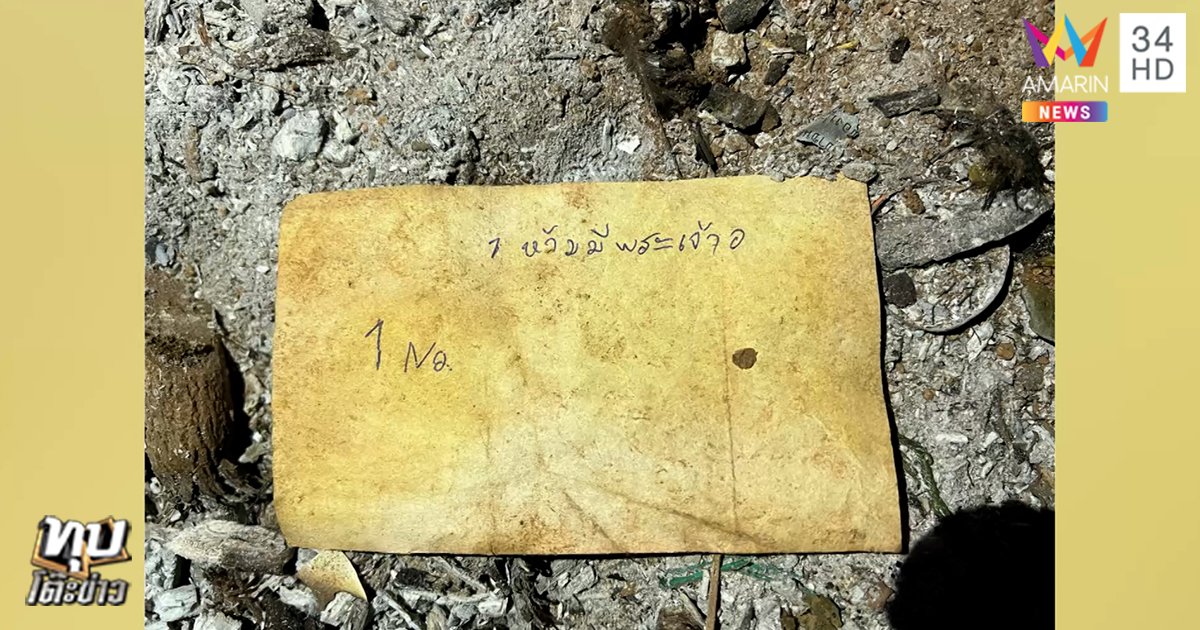 AMARIN
NEWS
34
HD
1 หัวมีพระเจ้าอ
1 No.
ทุบ
โต๊ะข่าว